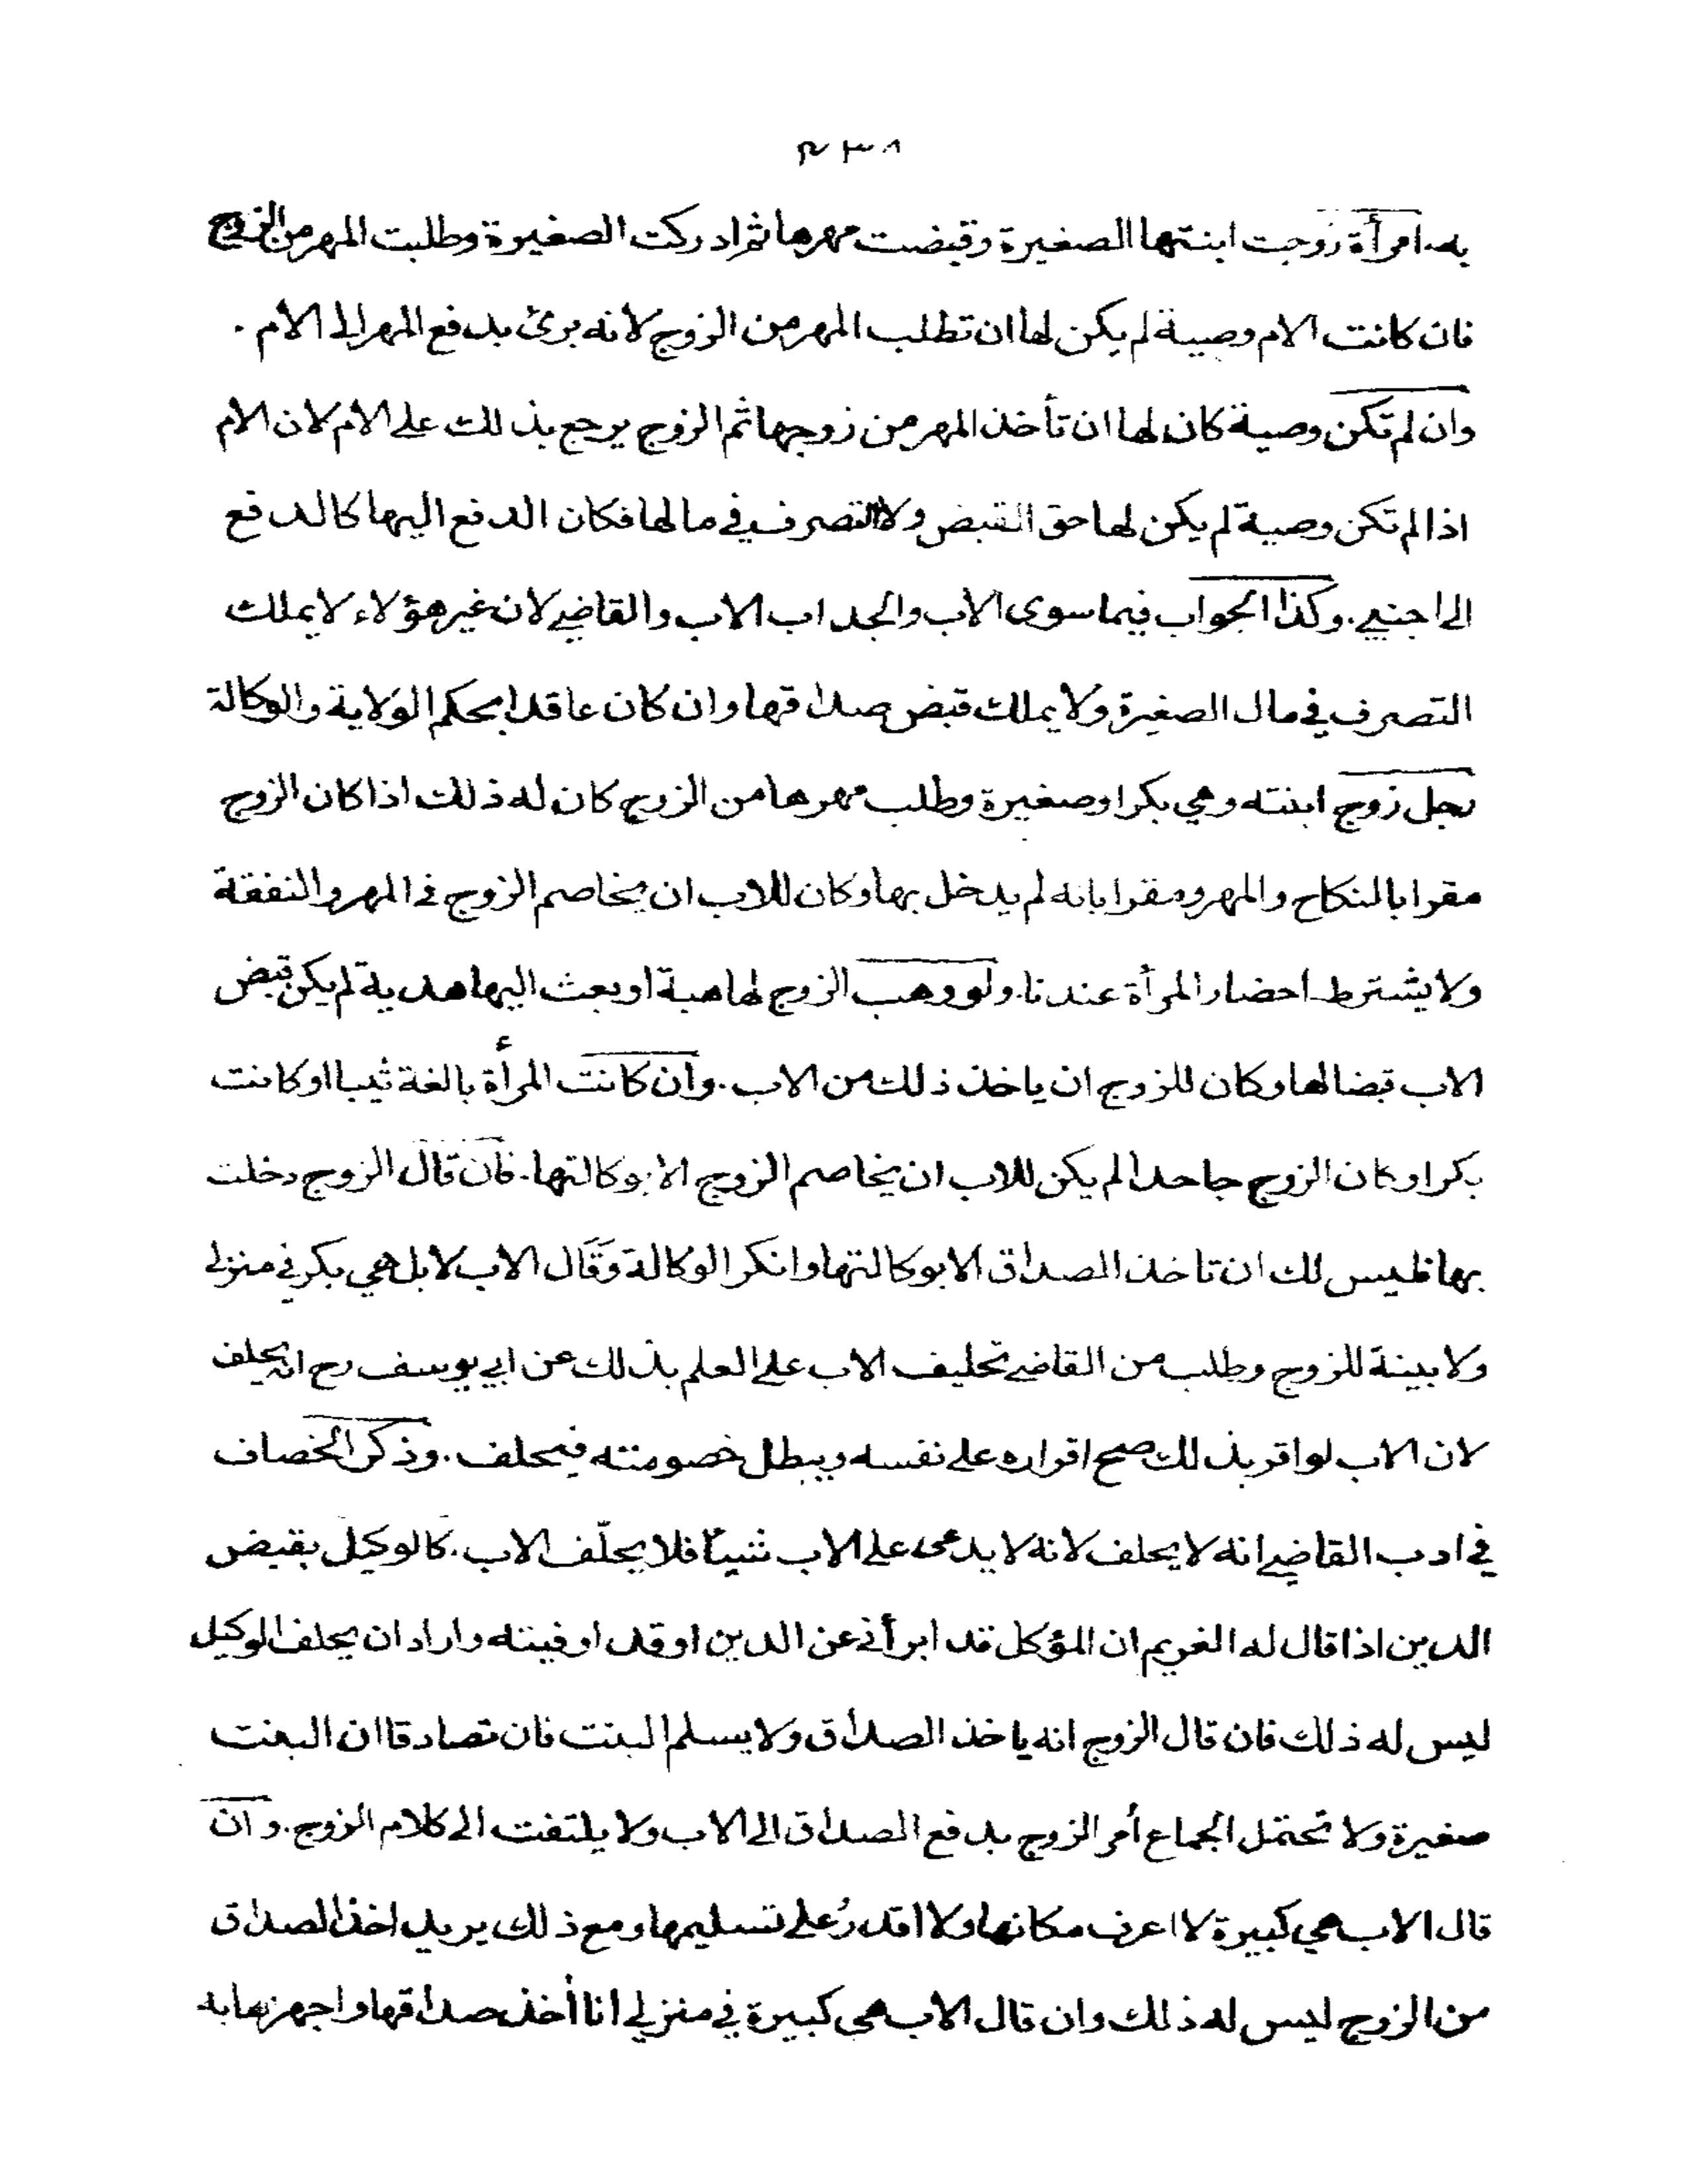 ٤٣٨
به. امرأة زوجت ابنتها الصغيرة وقبضت مهرها ثم ادركت الصغيرة وطلبت المهر من الزوج
فان كانت الام وصية لم يكن لها ان تطلب المهر من الزوج لانه برئ بدفع المهر الى الام.
وان لم تكن وصية كان لها ان تأخذ المهر من زوجها ثم الزوج يرجع بذلك على الام لان الام
اذا لم تكن وصية لم يكن لها حق القبض ولا التصرف في مالها فكان الدفع اليها كالدفع
الى اجنبي. وكذا الجواب فيما سوى الاب والجد اب الاب والقاضي لان غير هؤلاء لا يملك
التصرف في مال الصغيرة ولا يملك قبض صداقها وان كان عاقدا بحكم الولاية والوكالة
رجل زوج ابنته وهي بكر او صغيرة وطلب مهرها من الزوج كان له ذلك اذا كان الزوج
مقرا بالنكاح والمهر ومقرا بانه لم يدخل بها وكان للاب ان يخاصم الزوج في المهر والنفقة
ولا يشترط احضار المرأة عندنا. ولو وهب الزوج لها هبة او بعث اليها هدية لم يكن قبض
الاب قبضا لها وكان للزوج ان ياخذ ذلك من الاب. وان كانت المرأة بالغة ثيبا او كانت
بكرا وكان الزوج جاحدا لم يكن للاب ان يخاصم الزوج الا بوكالتها. فان قال الزوج دخلت
بها فليس لك ان تاخذ الصداق الا بوكالتها وانكر الوكالة وقال الاب لا بل هي بكر في منزلي
ولا بينة للزوج وطلب من القاضي تحليف الاب على العلم بذلك عن ابي يوسف رح انه يحلف
لان الاب لو اقر بذلك صح اقراره على نفسه ويبطل خصومته فيحلف. وذكر الخصاف
في ادب القاضي انه لا يحلف لانه لا يدعى على الاب شيئا فلا يحلّف الاب. كالوكيل بقبض
الدين اذا قال له الغريم ان المؤكل قد ابرأني عن الدين او قد اوفيته واراد ان يحلف الوكيل
ليس له ذلك فان قال الزوج انه ياخذ الصداق ولا يسلم البنت فان تصادقا ان البنت
صغيرة ولا تحتمل الجماع أمر الزوج بدفع الصداق الى الاب ولا يلتفت الى كلام الزوج. وان
قال الاب هي كبيرة لا اعرف مكانها ولا اقدرُ على تسليمها ومع ذلك يريد اخذ الصداق
من الزوج ليس له ذلك وان قال الاب هي كبيرة في منزلي انا أخذ صداقها واجهزها به